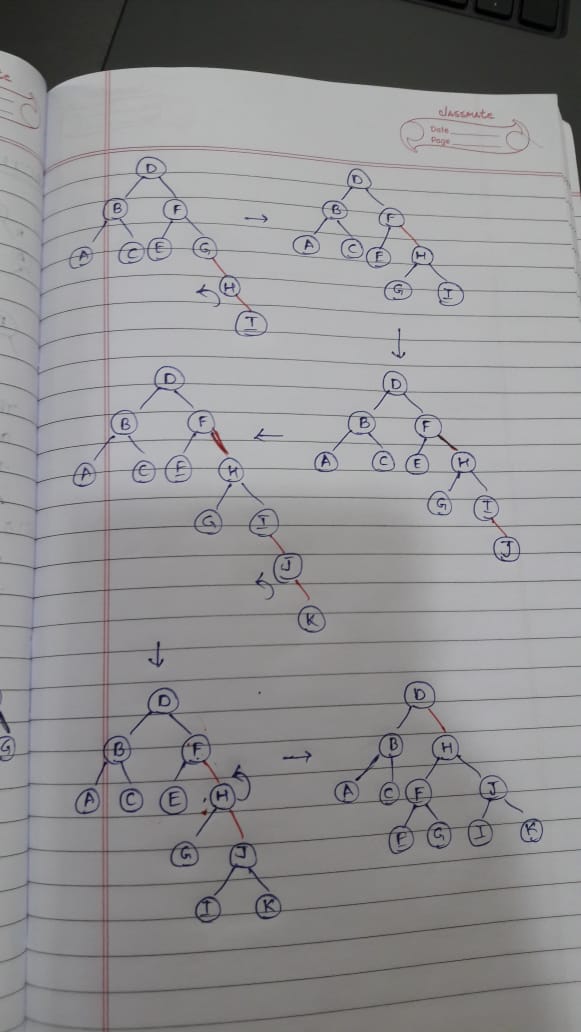 classmate
Date
Page
D
B F
A C E G
H
I
D
B F
A C E H
G I
D
B F
A C E H
G I
J
D
B F
A C E H
G I
J
K
D
B F
A C E H
G J
I K
D
B H
A C F J
E G I K
G